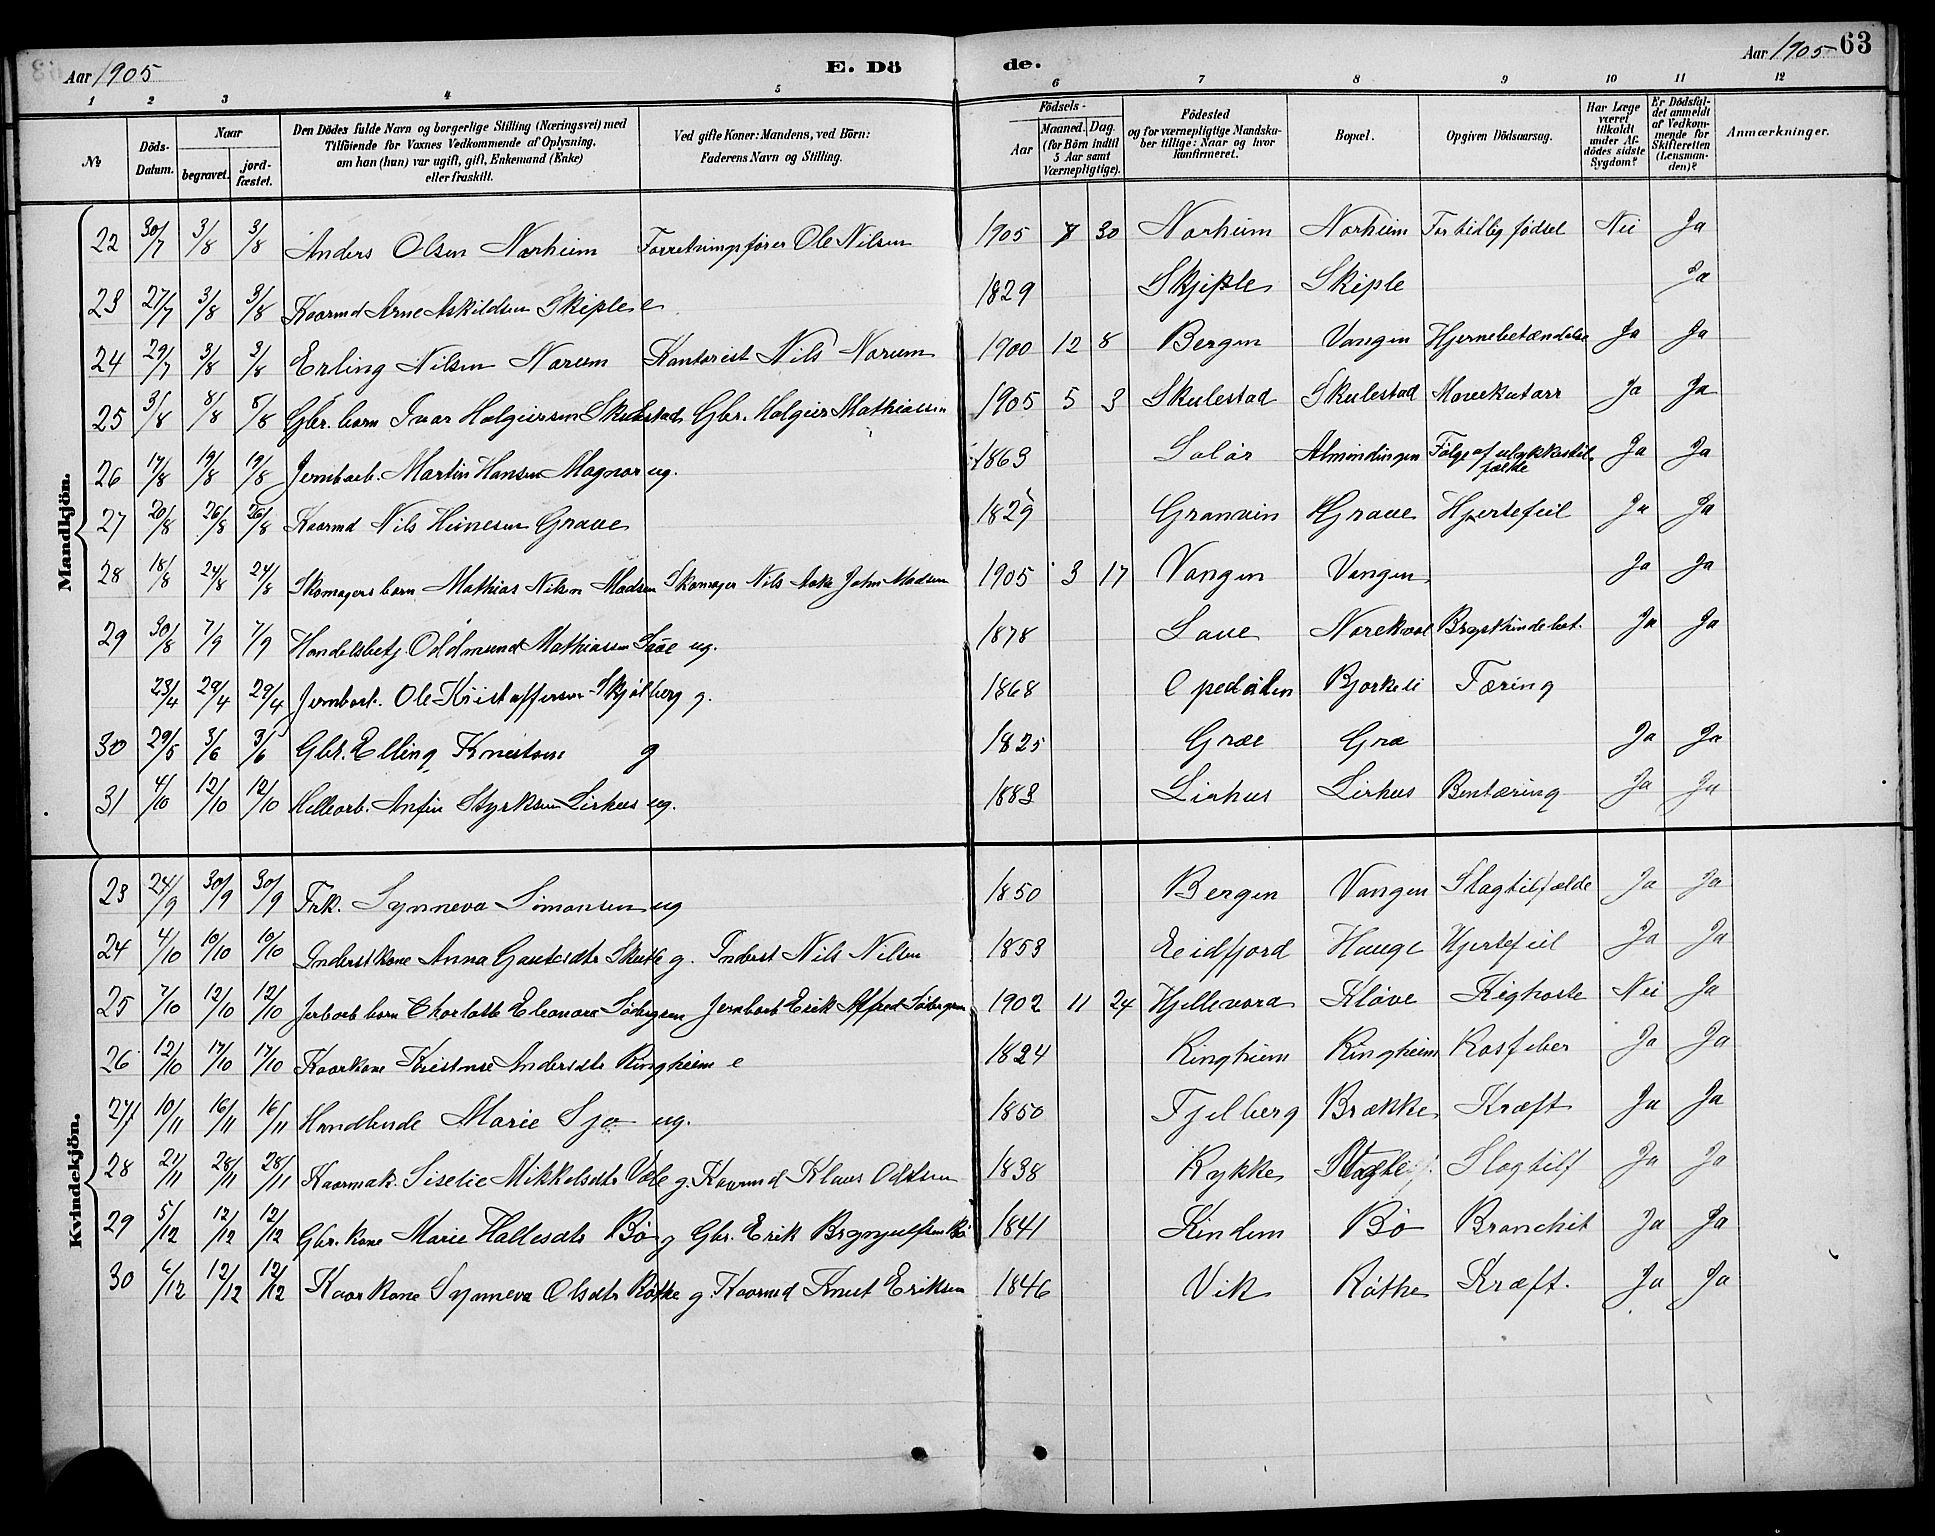 Aar 1905 E. Dö de. Aar 1905 63
1 2 3 4 5 6 7 8 9 10 11 12
No Döds-Datum. Naar begravet. jordfæstet. Den Dödes fulde Navn og borgerlige Stilling (Næringsvei) med Tilföiende for Voxnes Vedkommende af Oplysning, om han (hun) var ugift, gift, Enkemand (Enke) eller fraskilt. Ved gifte Koner: Mandens, ved Börn: Faderens Navn og Stilling. Födsels- Aar Maaned. Dag. (for Börn indtil 5 Aar samt Værnepligtige). Födested og for værnepligtige Mandskaber tillige: Naar og hvor konfirmeret. Bopæl. Opgiven Dödsaarsag. Har Læge været tilkaldt under Afdödes sidste Sygdom? Er Dödsfaldet anmeldt af Vedkommende for Skifteretten (Lensmanden)? Anmærkninger.
Mandkjön.
22 30/7 3/8 3/8 Anders Olsen Norheim Forretningsfører Ole Nilsen 1905 7 30 Norheim Norheim For tidlig fødsel Nei Ja
23 27/7 3/8 3/8 Kaarmd Arne Askildsen Skiple e. 1829 Skjiple Skiple Ja
24 29/7 3/8 3/8 Erling Nilsen Norum Kontorist Nils Norum 1900 12 8 Bergen Vangen Hjernebetændelse Ja Ja
25 3/8 8/8 8/8 Gbr. barn Ivar Holgiersen Skulestad Gbr. Holgier Mathiassen 1905 5 3 Skulestad Skulestad Mavekatarr Ja Ja
26 17/8 19/8 19/8 Jernbarb. Martin Hansen Magnor ug. 1863 Solør Almindingen Følge af ulykkestilfælde Ja Ja
27 20/8 26/8 26/8 Kaarmd Nils Heinesen Grave 1829 Granvin Grave Hjertefeil Ja Ja
28 18/8 24/8 24/8 Skomagers barn Mathias Nilsen Madsen Skomager Nils John Madsen 1905 3 17 Vangen Vangen Ja Ja
29 30/8 7/9 7/9 Handelsbetj. Oddmund Mathiassen ug. 1878 Norekval Ja Ja
23/4 29/4 29/4 Jernbarb. Ole Kristoffersen Skjølberg g. 1868 Opedalen Bjorkeli Tæring
30 29/5 3/6 3/6 Gbr. Elling Knutson g 1825 Græ Gra Ja Ja
31 4/10 12/10 12/10 Hellearb. Anfin Styrksen Lirhus ug. 1883 Lirhus Lirhus Bentæring Ja Ja
Kvindekjön.
23 24/9 30/9 30/9 Frk. Synneva Simonsen ug 1850 Bergen Vangen Slagtilfælde Ja Ja
24 4/10 10/10 10/10 Inderstkone Anna g. Inderst Nils Nilsen 1853 Eidfjord Hauge Hjertefeil Ja Ja
25 7/10 12/10 12/10 Jerbarb barn Charlotte Eleonora Södergren Jernbarb Erik Alfred Södergren 1902 11 24 Hjellevora Kløve Kighoste Nei Ja
26 12/10 17/10 17/10 Kaarkone Kristense Andersdtr Ringheim e 1824 Ringheim Ringheim Rosfeber Ja Ja
27 10/11 16/11 16/11 Handlende Marie Sjo ug. 1850 Fjelberg Brække Kræft Ja Ja
28 21/11 28/11 28/11 Kaarmak. Siselie Mikkelsdtr g. Kaarmd Klaus Oddsen 1838 Rykke Slagtilf Ja Ja
29 5/12 12/12 12/12 Gbr. kone Marie Hallesdtr Bø g Gbr. Erik Brynjulfsen Bø 1841 Kindem Bø Bronchit Ja Ja
30 6/12 12/12 12/12 Kaarkone Synneva Olsdtr Røthe g. Kaarmd Knut Eriksen 1846 Vik Røthe Kræft. Ja Ja